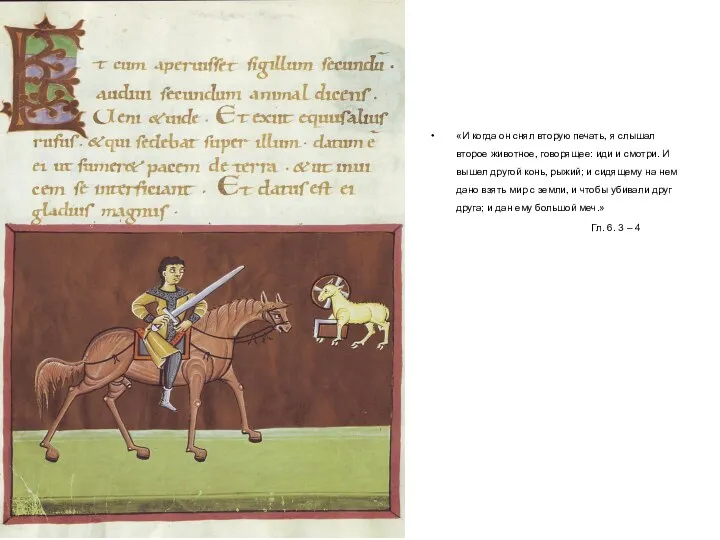 Et cum aperuisset sigillum secundū.
audiui secundum animal dicens.
Ueni &uide. Et exiit equus alius
rufus. &qui sedebat super illum. datum ē
ei ut sumer& pacem de terra. &ut inui
cem se interficiant. Et datus est ei
gladius magnus.
• «И когда он снял вторую печать, я слышал
второе животное, говорящее: иди и смотри. И
вышел другой конь, рыжий; и сидящему на нем
дано взять мир с земли, и чтобы убивали друг
друга; и дан ему большой меч.»
Гл. 6. 3 – 4